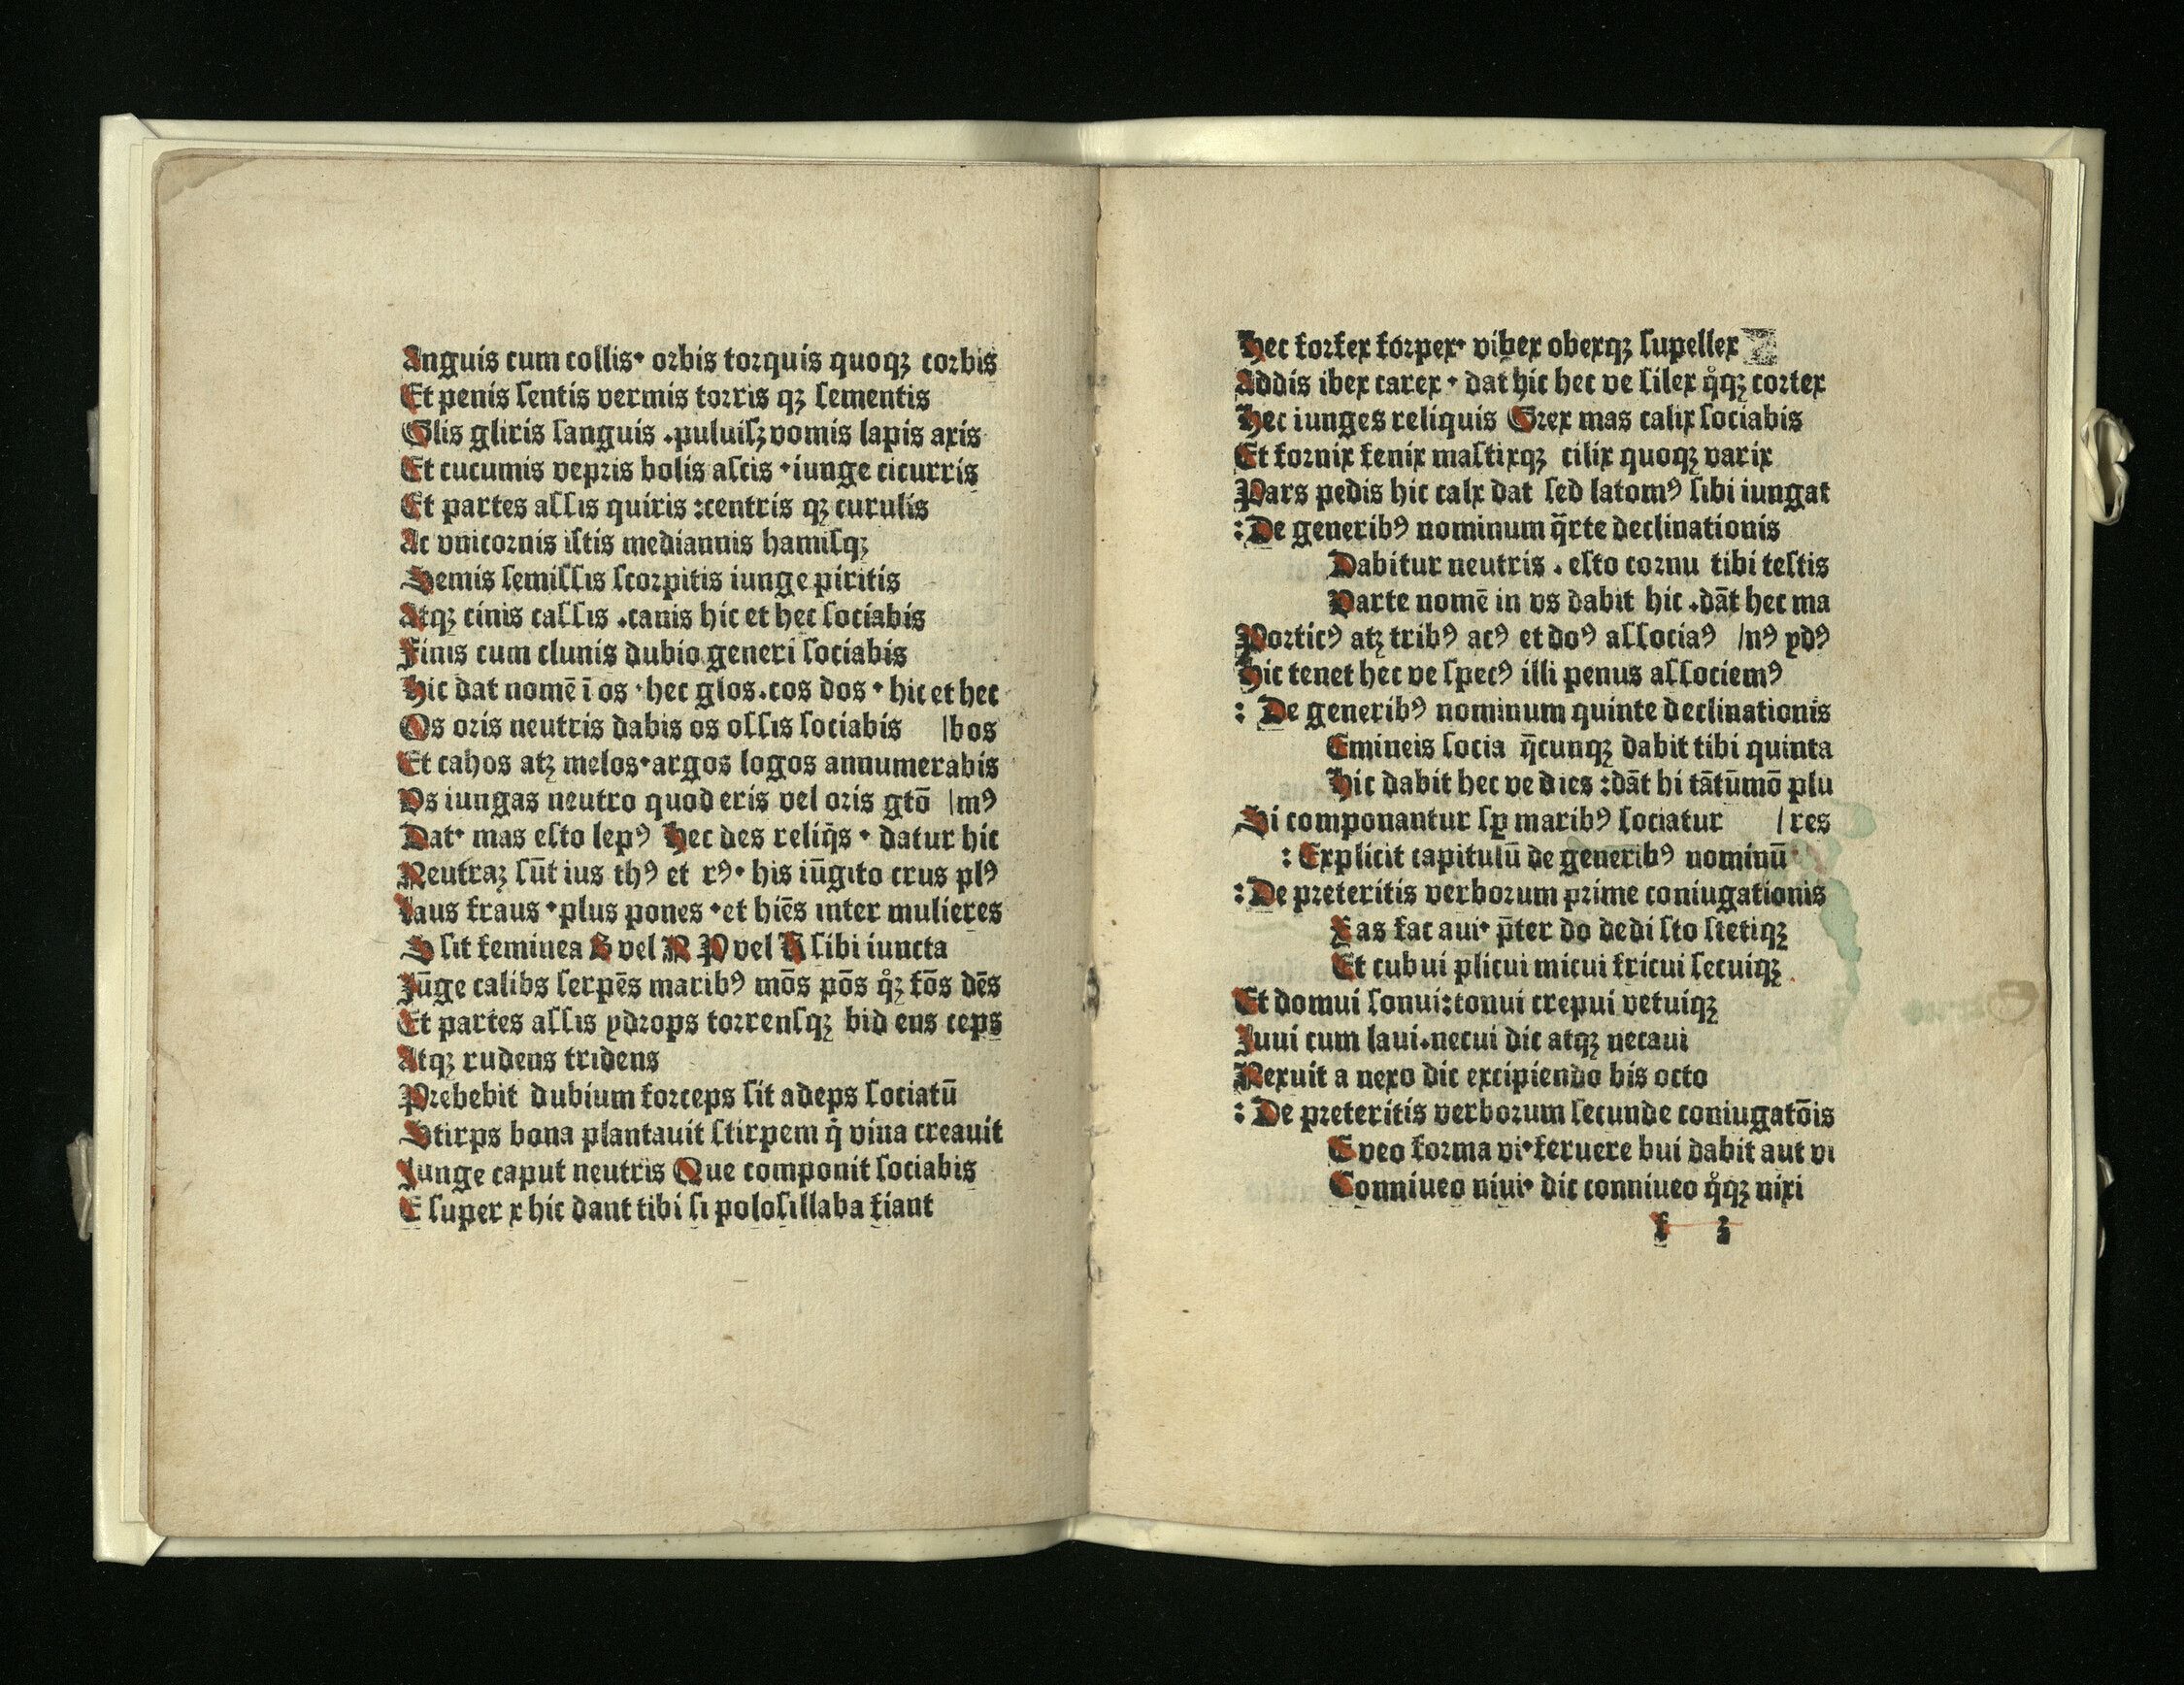 Anguis cum collis· orbis torquis quoqꝫ corbis
Et penis ſentis vermis torris qꝫ ſementis
Glis gliris ſanguis .puluiſꝫ vomis lapis axis
Et cucumis vepris bolis aſcis ·iunge cicurris
Et partes aſſis quiris :centris qꝫ curulis
Ac vnicornis iſtis mediannis hamiſqꝫ
Semis ſemiſſis ſcorpitis iunge piritis
Atqꝫ cinis caſſis .canis hic et hec ſociabis
Finis cum clunis dubio generi ſociabis
Hic dat nomē ī os ·hec glos.cos dos · hic et hec
Os oris neutris dabis os oſſis ſociabis |bos
Et cahos atꝫ melos·argos logos annumerabis
Vs iungas neutro quod eris vel oris gtō |mꝰ
Dat· mas eſto lepꝰ Hec des reliq̄s · datur hic
Neutraꝫ ſūt ius thꝰ et rꝰ· his iūgito crus plꝰ
Laus fraus ·plus pones ·et hiēs inter mulieres
S ſit feminea S vel R P vel N ſibi iuncta
Jūge calibs ſerpēs maribꝰ mōs pōs qͦꝫ fōs dēs
Et partes aſſis ydrops torrenſqꝫ bid ens ceps
Atqꝫ rudens tridens
Prebebit dubium forceps ſit adeps ſociatū
Stirps bona plantauit ſtirpem q̄ vina creauit
Junge caput neutris Que componit ſociabis
E ſuper x hic dant tibi ſi poloſillaba fiant
Hec forfex forpex· vibex obexqꝫ ſupellex
Addis ibex carex · dat hic hec ve ſilex qͦqꝫ cortex
Hec iunges reliquis Grex mas calix ſociabis
Et fornix fenix maſtixqꝫ cilix quoqꝫ varix
Pars pedis hic calx dat ſed latomꝰ ſibi iungat
:De generibꝰ nominum q̄rte declinationis
Dabitur neutris . eſto cornu tibi teſtis
Parte nomē in vs dabit hic .dāt hec ma
Porticꝰ atꝫ tribꝰ acꝰ et doꝰ aſſociaꝰ /nꝰ ydꝰ
Hic tenet hec ve ſpecꝰ illi penus aſſociemꝰ
: De generibꝰ nominum quinte declinationis
Emineis ſocia q̄cunqꝫ dabit tibi quinta
Hic dabit hec ve dies :dāt hi tātūmō plu
Si componantur ſꝑ maribꝰ ſociatur /res
: Explicit capitulū de generibꝰ nominū
:De preteritis verborum prime coniugationis
As fac aui· p̄ter do dedi ſto ſtetiqꝫ
Et cubui plicui micui fricui ſecuiqꝫ
Et domui ſonui:tonui crepui vetuiqꝫ
Juui cum laui.necui dic atqꝫ necaui
Nexuit a nexo dic excipiendo bis octo
: De preteritis verborum ſecunde coniugatōis
E veo forma vi·feruere bui dabit aut vi
Conniueo niui· dic conniueo qͦqꝫ nixi
f 3